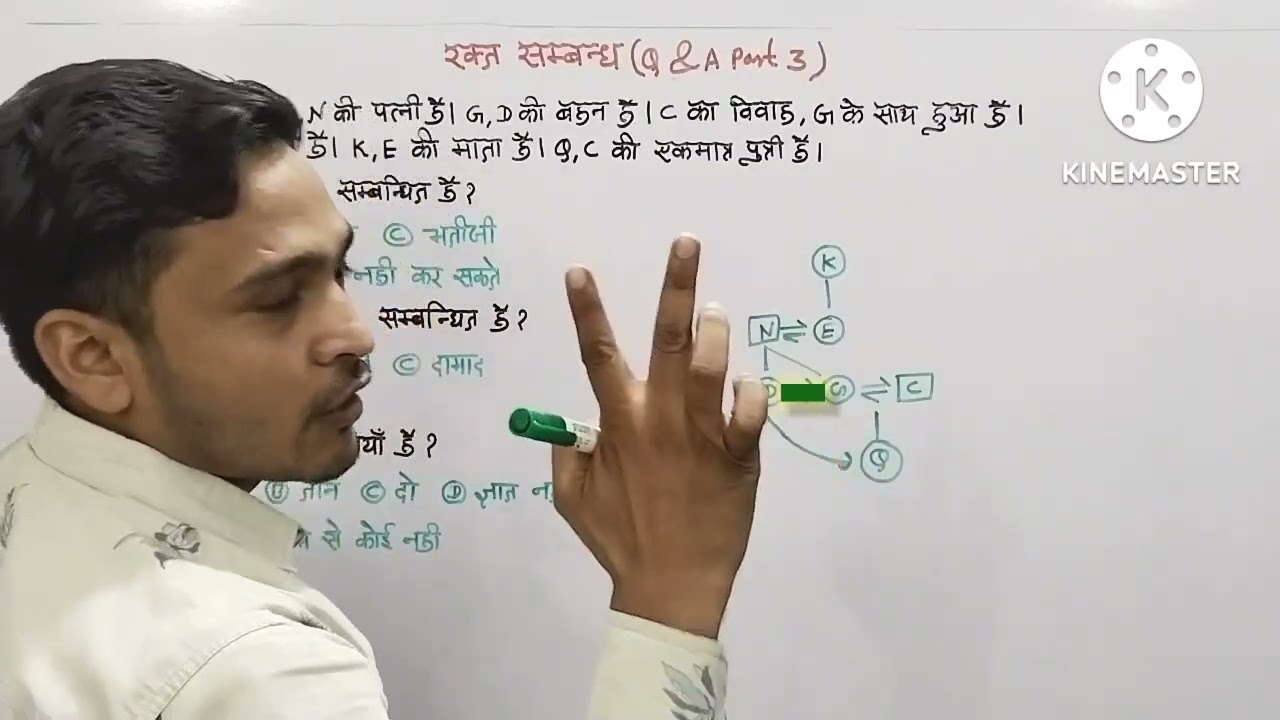 रक्त सम्बन्ध (Q & A Part 3)
N की पत्नी है। G, D की बहन है। C का विवाह, G के साथ हुआ है।
है। K, E की माता है। Q, C की एकमात्र पुत्री है।
सम्बन्धित है?
C भतीजी
नही कर सकते
सम्बन्धित है?
C दामाद
है?
C दो D ज्ञात
से कोई नही
K
N E
G C
Q
K
KINEMASTER